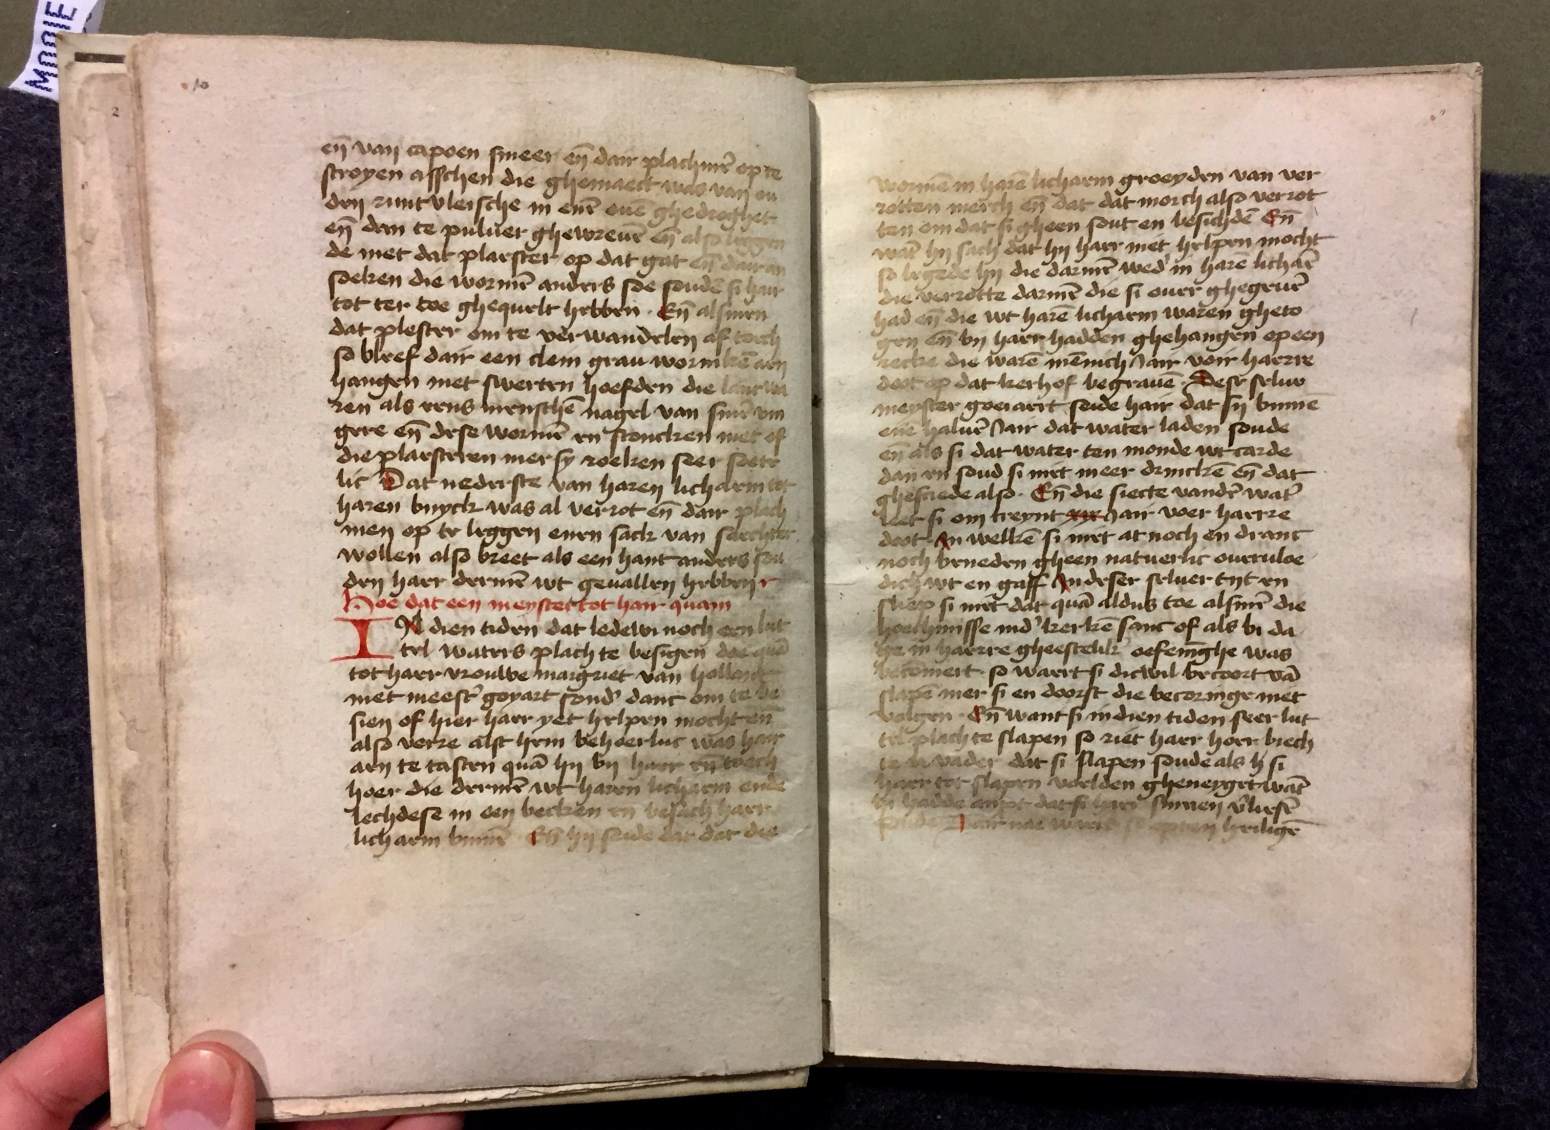 MOOIE
10
2
en̄ van capoen smeer en̄ dair plachmē op te
stroyen asschen die ghemaect was van ou
den runtvleische in enē ouē ghedroghet
en̄ dan te puluer ghewreuē en̄ also legghen
de met dat plaester op dat gat en̄ dair an
soeken die wormē anders soe soudē si hair
tot ter toe ghequelt hebben · En̄ alsmen
dat plester om te verwandelen af toech
so bleef dair een clein grau wormkēn aen
hangen met swerten hoefden die
ren als eens menschē nagel van sinē vin
gere en̄ dese wormē en stoncken niet of
die plaesteren mer sy roeken seer soete
lic Dat nederste van haren licharm tot
haren buyck was al verrot en̄ dair plach
men op te leggen enen sack van
wollen also breet als een hant anders sou
den haer dermē wt geuallen hebben
Hoe dat een meyster tot hair quam
IN dien tiden dat ledewi noch een lut
tel waters plach te besigen doe quā
tot haer vrouwe margriet van hollant
met meest' goyart sond' danc om te be
sien of hier haer yet helpen mocht en̄
also verre alst hem behoerlic was hair
aen te tasten quā hij bij haer en̄ toech
hoer die dermē wt haren licharm ende
lechdese in een becken en̄ besach haer
licharm binnē · En̄ hij seide dat dat die
wormē in harē licharm groeyden van ver
rotten merch en̄ dat dat morch also verrot
ten om dat si gheen sout en besichdē En̄
wāt hij sach dat hij haer niet helpen mocht
so legede hij die darmē wed' in harē lichaē
die verrotte darmē die si ouer ghegeuē
had en̄ die wt harē licharm waren gheto
gen en̄ bij haer hadden ghehangen op een
recke die warē mēnich Jair voir haerre
doot op dat kerhof begrauē · Dese seluer
meyster goeiaert seide hair dat sij binnē
enē haluē Jair dat water laden soude
en̄ als si dat water ten monde wt carde
dan en soud si niet meer drinckē en̄ dat
ghesciede also · En̄ die siecte vandē wat'
leet si om treynt Jair voer haerre
doot · In welkē si niet at noch en dranc
noch beneden gheen natuerlic ouervloe
dich wt en gaff In deser seluer tyt en
sliep si niet dat quā aldus toe alsmē die
hoechnisse ind' kerkē sanc of als bi da
ge in haerre gheestelik' oefeninghe was
becōmert · so waert si dicwil becoert vā
slapē mer si en doorst die becoringe niet
volgen · En̄ want si in dien tiden seer lut
tel plach te slapen so riet haer hoer biech
te vader dat si slapen soude als h si
haer tot slapen voelden gheneyget wāt
hi hadde anxt dat si haer sinnen v'liesē
heiligē